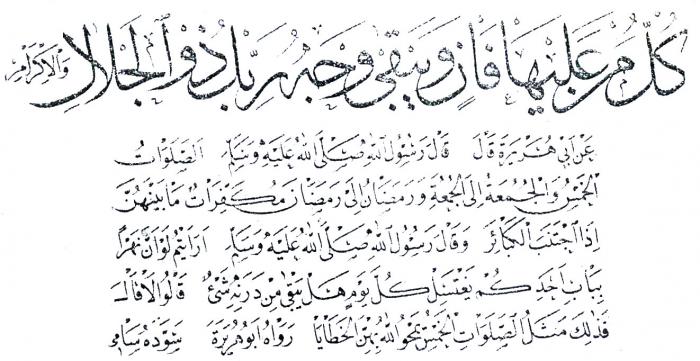 كُلُّ مَنْ عَلَيْهَا فَانٍ وَيَبْقَى وَجْهُ رَبِّكَ ذُو الْجَلَالِ وَالْاِكْرَامِ
عَنْ اَبِي هُرَيْرَةَ قَالَ قَالَ رَسُولُ اللهِ صَلَّى اللهُ عَلَيْهِ وَسَلَّمَ الصَّلَوَاتُ
الْخَمْسُ وَالْجُمُعَةُ اِلَى الْجُمُعَةِ وَرَمَضَانُ اِلَى رَمَضَانَ مُكَفِّرَاتٌ مَا بَيْنَهُنَّ
اِذَا اجْتَنَبَ الْكَبَائِرَ وَقَالَ رَسُولُ اللهِ صَلَّى اللهُ عَلَيْهِ وَسَلَّمَ اَرَاَيْتُمْ لَوْ اَنَّ نَهْرًا
بِبَابِ اَحَدِكُمْ يَغْتَسِلُ كُلَّ يَوْمٍ هَلْ يَبْقَى مِنْ دَرَنِهِ شَئٌ قَالُوا لَا قَالَ
فَذَلِكَ مَثَلُ الصَّلَوَاتِ الْخَمْسِ يَمْحُو اللهُ بِهِنَّ الْخَطَايَا رَوَاهُ اَبُو هُرَيْرَةَ سَوَّدَهُ سَامِى